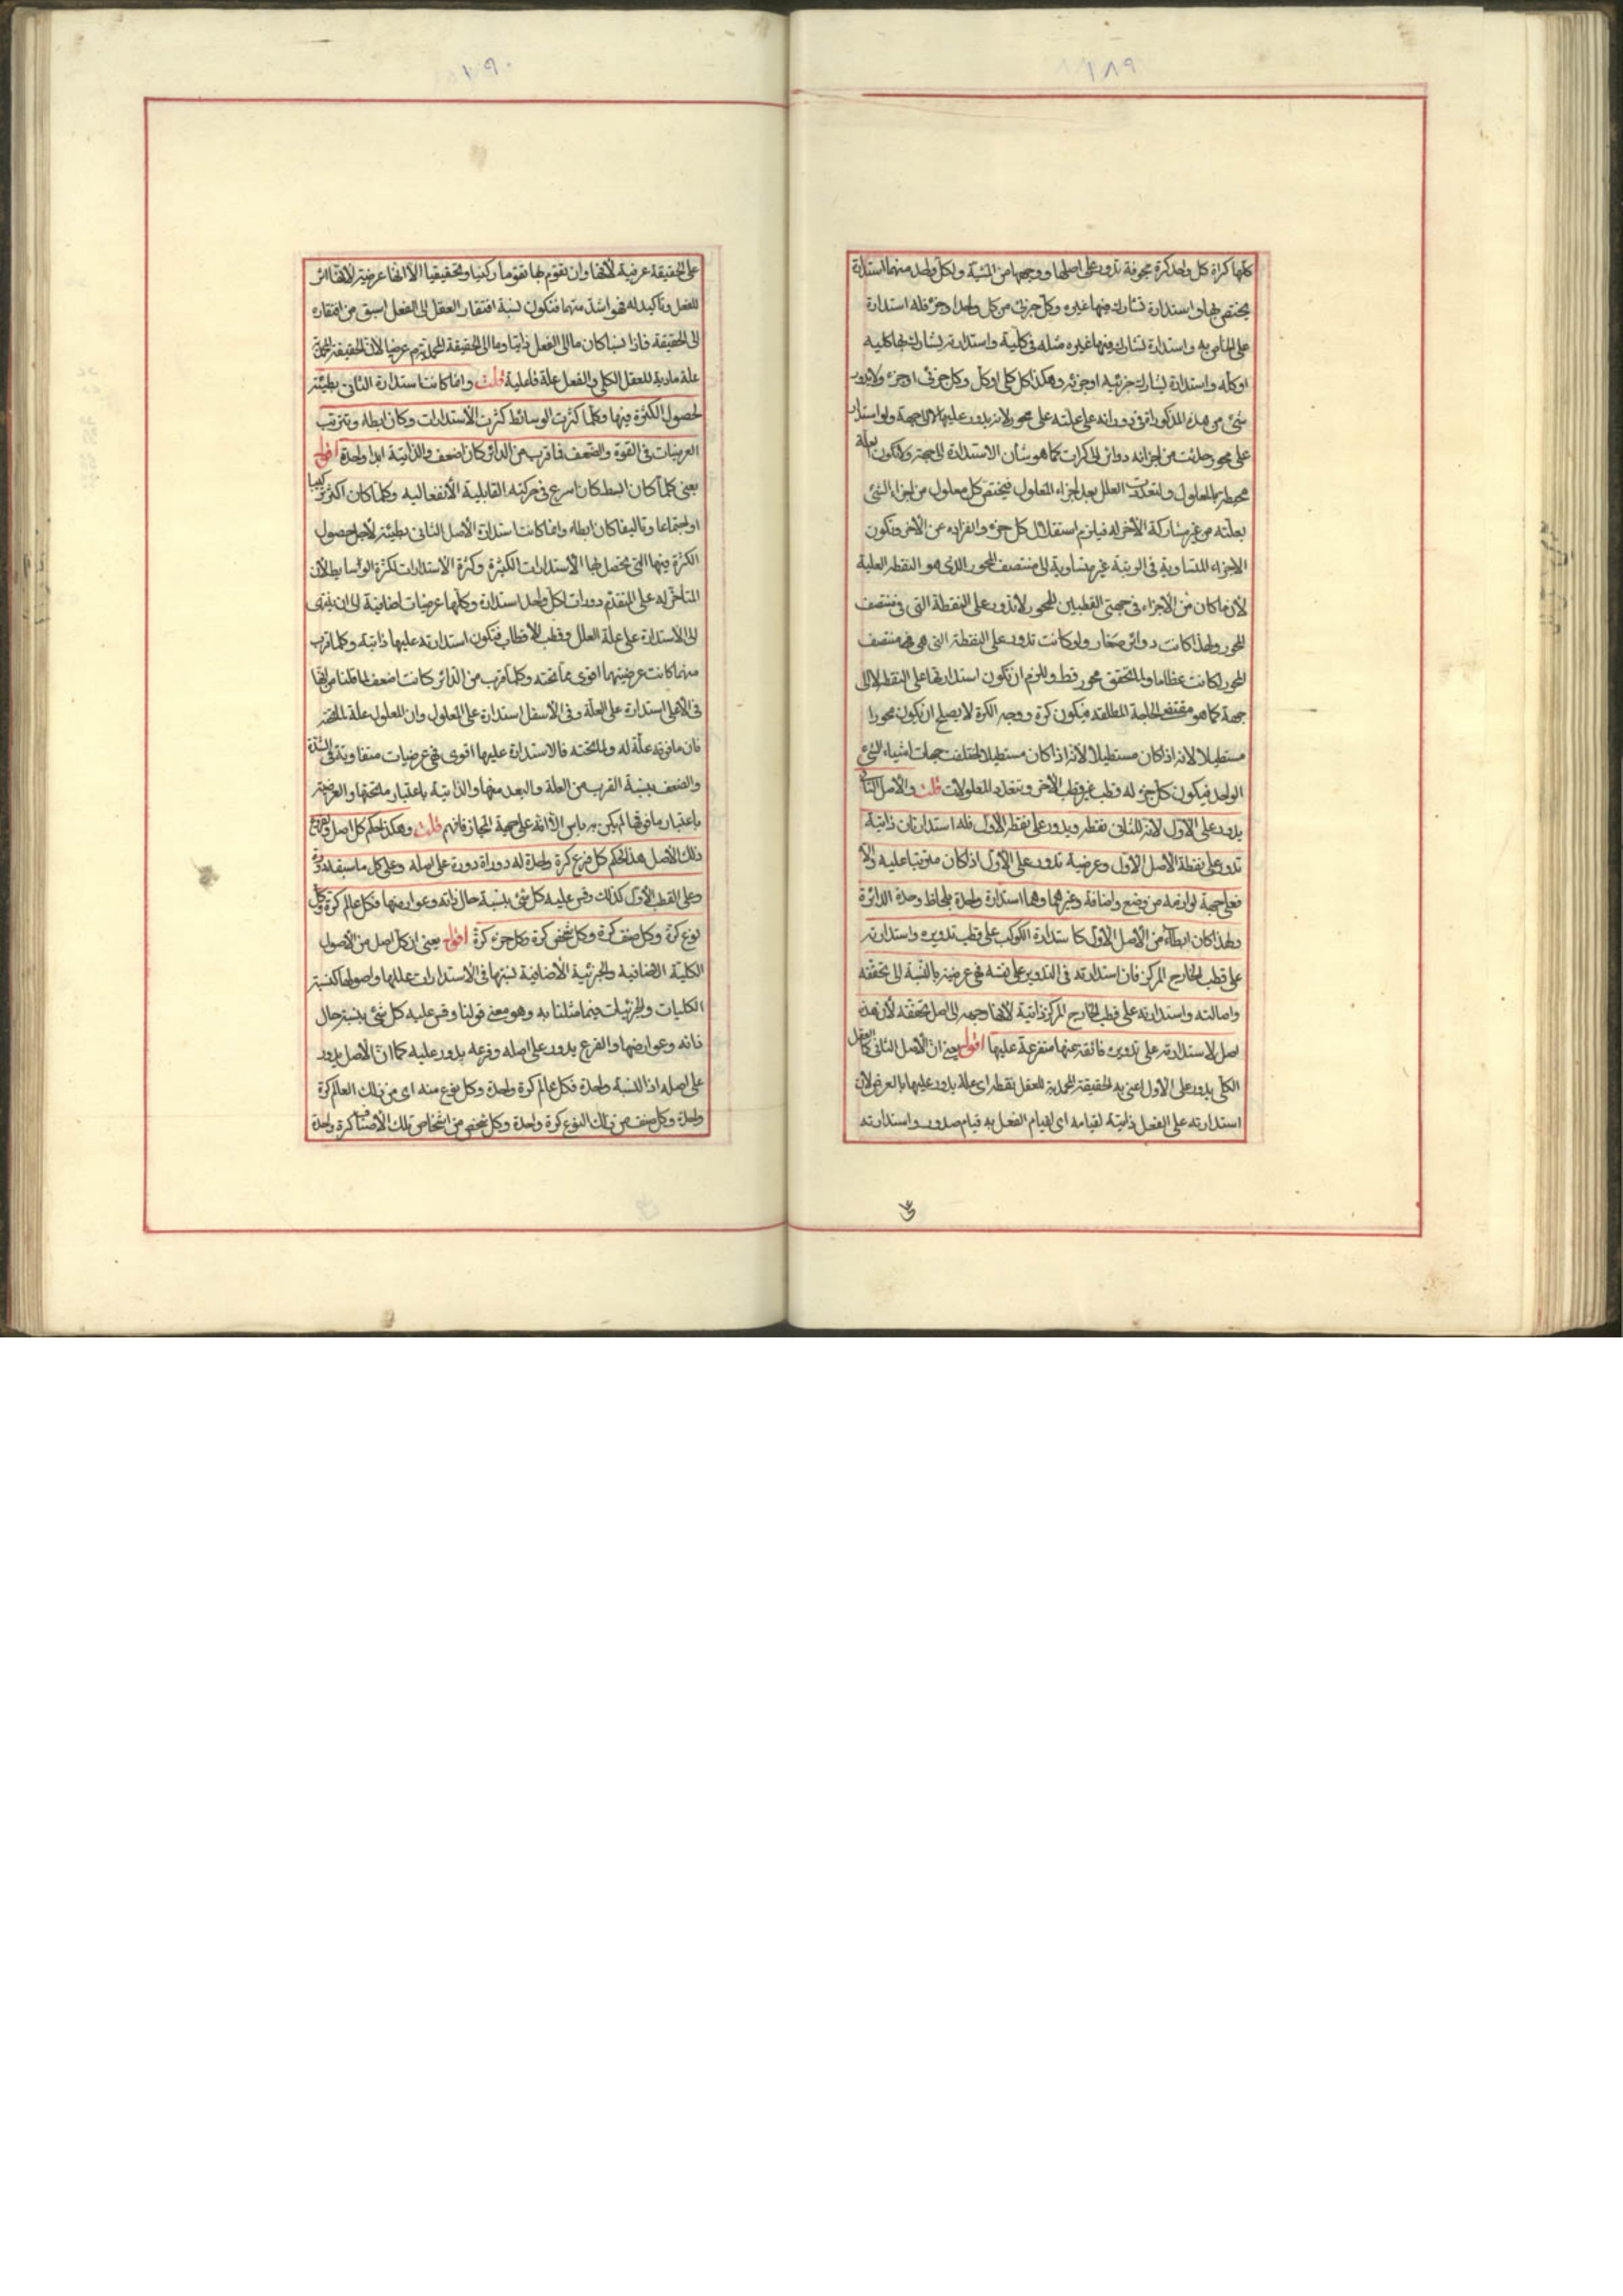 ١٨٩
كلها كراة كل واحد كرة مجوفة تدور على اصلها ووجهها من المشية ولكل واحد منهما استدارة
يختص بها واستدارة تشارك فيها غيره وكل جزئى من كل واحد او جزء فله استدارة
على الخاص به واستدارة تشارك فيها غيره مثله فى كلية واستدارة تشارك بها كليه
او كله واستدارة تشارك جزئية او جزئه وهكذا كل كلى او كل وكل جزئى او جزء ولا يدور
شئ من هذه المذكورات فى دورانه على علته على محور لانه يدور عليها لا الى جهة ولو استدار
على محور حدثت من اجزائه دوائر لا كرات كما هو شأن الاستدارة الى جهة ولا تكون علة
محيطة بالمعلول ولتعددت العلل بعدد اجزاء المعلول فيختص كل معلول من اجزاء الشئ
بعلته من غير مشاركة الآخر له فيلزم استقلال كل جزء وانفراده عن الآخر وتكون
الاجزاء المتساوية فى الرتبة غير متساوية الى منتصف المحور الذى هو النقطة العلية
لأن ما كان من الاجزاء فى جهتى القطبين للمحور لا تدور على النقطة التى فى منتصف
المحور ولهذا كانت دوائر صغار ولو كانت تدور على النقطة التى هى فى منتصف
المحور لكانت عظاما ولما تحقق محور قط وللزم ان تكون استدارتها على النقطة لا الى
جهة كما هو مقتضى الحاجة المطلقة فيكون كرة ووجه الكرة لا يصلح ان يكون محورا
مستطيلا لانه اذا كان مستطيلا لأنه اذا كان مستطيلا اختلفت جهات اشياء الشئ
الواحد فيكون كل جزء له قطب غير قطب الآخر وتتعدد المعلولات قلت والاصل الثانى
يدور على الاول لانه للثانى نقطة ويدور على نقطة الاول فله استدارتان ذاتية
تدور على نقطة الاصل الاول وعرضية تدور على الاول اذا كان مترتبا عليه والا
فعلى جهة لوازمه من وضع واضافة وغيرهما وهما استدارة واحدة بلحاظ وحدة الدائرة
ولهذا كان ابطاء من الاصل الاول كاستدارة الكوكب على قطب تدويره واستدارته
على قطب الخارج المركز فان استدارته فى التدوير على نفسه فهى عرضية بالنسبة الى تحققه
واصالته واستدارته على قطب الخارج المركز ذاتية لأنها وجهه الى اصل تحققه لأن هذه
اصل لاستدارته على تدويره فائقة عنها متفرعة عليها اقول يعنى ان الأصل الثانى كالعقل
الكلى يدور على الاول اعنى به الحقيقة المحمدية للعقل نقطة اى علة يدور عليها بالعرض لأن
استدارته على الفعل ذاتية لقيامه اى لقيام الفعل به قيام صدور واستدارته
على
١٩٠
على الحقيقة عرضية لأنها وان تقوم بها تقوما ركنيا وتحقيقيا الا انها عرضية لأنها اثر
للفعل وتأكيد له فهو اشد منهما فتكون نسبة افتقار العقل الى الفعل اسبق من افتقاره
الى الحقيقة فاذا نسبا كان ما الى الفعل ذاتيا وما الى الحقيقة المحمدية عرضيا لأن الحقيقة المحمدية
علة مادية للعقل الكلى والفعل علة فاعلية قلت وانما كانت استدارة الثانى بطيئة
لحصول الكثرة فيها وكلما كثرت الوسائط كثرت الاستدارات وكان ابطاء وتترتب
العرضيات فى القوة والضعف فما قرب من الدائر كان اضعف والذاتية ابدا واحدة اقول
يعنى كلما كان ابسط كان اسرع فى حركته القابلية الانفعالية وكلما كان اكثر تركيبا
او اجتماعا وتأليفا كان ابطاء وانما كانت استدارة الأصل الثانى بطيئة لأجل حصول
الكثرة فيها التى تحصل لها الأستدارات الكثيرة وكثرة الأستدارات لكثرة الوسايط لأن
المتأخر له على المتقدم دورات لكل واحد استدارة وكلها عرضيات اضافية الى ان ينتهى
الى الأستدارة على علة العلل وقطب الأقطاب فتكون استدارته عليها ذاتية وكلما قرب
منهما كانت عرضيتهما اقوى مما تحته وكلما قرب من الدائر كانت اضعف لما قلنا من انها
فى الأعلى استدارة على العلة وفى الأسفل استدارة على المعلول وان المعلول علة لما تحته
فان ما فوقه علة له ولما تحته فالاستدارة عليها اقوى فهى عرضيات متفاوتة فى الشدة
والضعف بنسبة القرب من العلة والبعد منها والذاتية باعتبار ما تحتها والعرضية
باعتبار ما فوقها لم يكن به باس الا انه على جهة المجاز فافهم قلت وهكذا حكم كل اصل وفروع
ذلك الأصل هذا الحكم كل فرع كرة واحدة له دوراة دورة على اصله وعلى كل ما سبقه دورة
وعلى القطب الأول كذلك وقس عليه كل شئ بنسبة حال ذاته وعوارضها فكل عالم كرة وكل
نوع كرة وكل صنف كرة وكل شخص كرة وكل جزء كرة اقول يعنى ان كل اصل من الأصول
الكلية الاضافية والجزئية الأضافية نسبتها فى الأستدارات عللها واصولها كنسبة
الكليات والجزئيات فيما مثلنا به وهو معنى قولنا وقس عليه كل شئ بنسبة حال
ذاته وعوارضها والفرع يدور على اصله وفرعه يدور عليه كما ان الأصل يدور
على اصله اذا النسبة واحدة فكل عالم كرة واحدة وكل نوع منه اى من ذلك العالم كرة
واحدة وكل صنف من ذلك النوع كرة واحدة وكل شخص من اشخاص تلك الأصناف كرة واحدة